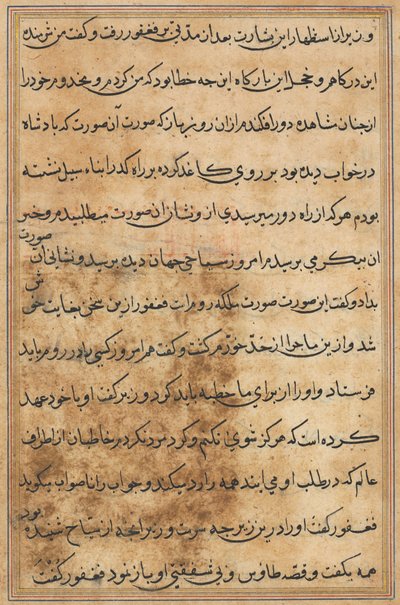 وزیر از استظهار این بشارت بعد از مدتی بر فغفور رفت و کفت من بنده
این درکاهم و خجل این بارکاه این چه خطا بود که من کردم و مخدوم خود را
از چنان مشاهده دور افکندم از آن روز باز که صورت آن صورت که پادشاه
در خواب دیده بود بر روی کاغذ کرده بر راه کذر ابناء سبیل نشسته
بودم هر که از راه دور میرسیدی از و نشان آن صورت میطلبیدم و خبر
آن پیکر می پرسیدم امروز سیاحی جهان دیده پرسید و نشانی آن صورت
بداد و کفت این صورت صورت ملکه روم است فغفور ازین سخن بغایت خوش
شد و ازین ماجرا از حد خرم کشت و کفت هم امروز کسی را در روم باید
فرستاد و او را از برای ما خطبه باید کرد وزیر کفت او با خود عهد
کرده است که هرکز شوی نکنم و کرد مرد نکردم خاطبان از اطراف
عالم که در طلب او می آیند همه را رد میکند و جواب را ناصواب میکوید
فغفور کفت او را درین زیر چه سرست وزیر آنچه از سیاح شنیده بود
همه بکفت و قصه طاوس و بی شفقتی او باز نمود فغفور کفت